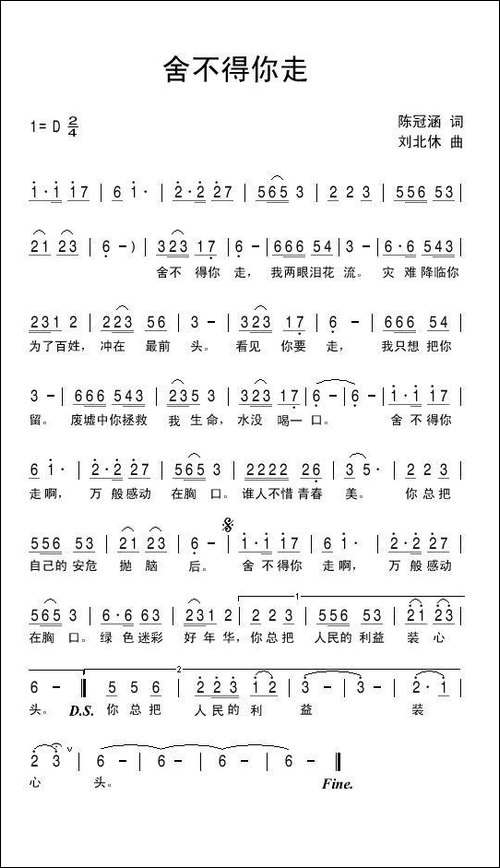 舍不得你走
1=D 2/4
陈冠涵 词
刘北休 曲
1·1 17 | 6 1· | 2·2 27 | 565 3 | 2 2 3 | 556 53 |
21 23 | 6 -) | 323 17 | 6 - | 666 54 | 3 - | 6·6 543 |
舍不 得你 走， 我两眼泪花 流。 灾 难 降临你
231 2 | 223 56 | 3 - | 323 17 | 6 - | 666 54 |
为了百姓， 冲在 最前 头。 看见 你要 走， 我只想 把你
3 - | 666 543 | 235 3 | 323 17 | 6 - | 6 - | 1·1 17 |
留。 废墟中你拯救 我 生命，水没 喝一 口。 舍 不得你
6 1· | 2·2 27 | 565 3 | 2222 26 | 3 5· | 2 2 3 |
走啊， 万 般感动 在胸 口。 谁人不惜 青春 美。 你 总把
556 53 | 21 23 | 6 - | 1·1 17 | 6 1· | 2·2 27 |
自己的 安危 抛 脑 后。 舍 不得你 走啊， 万 般感动
1
565 3 | 6·6 63 | 231 2 | 2 2 3 | 556 53 | 21 23 |
在胸 口。 绿 色迷彩 好 年 华，你 总把 人民的 利益 装 心
2
6 - | 5 5 6 | 223 12 | 3 - | 3 - | 2·1 |
头。 D.S. 你 总把 人民的 利 益 装
2 3 v | 6 - | 6 - | 6 - | 6 - |
心 头。 Fine.